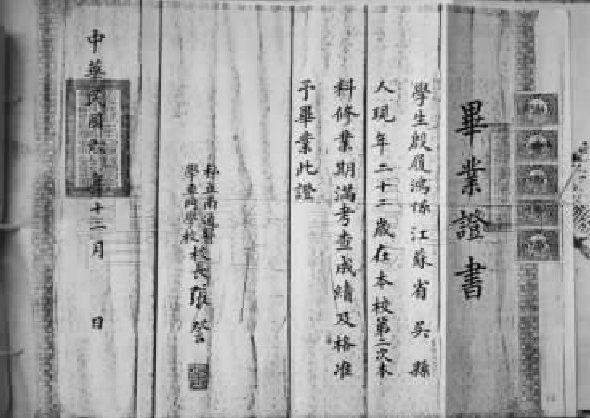 畢業證書
學生殷履鴻係江蘇省吳縣
人現年二十二歲在本校第二次本
科修業期滿考查成績及格准
予畢業此證
私立南通醫
學專門學校校長張詧
中華民國六年十二月　日